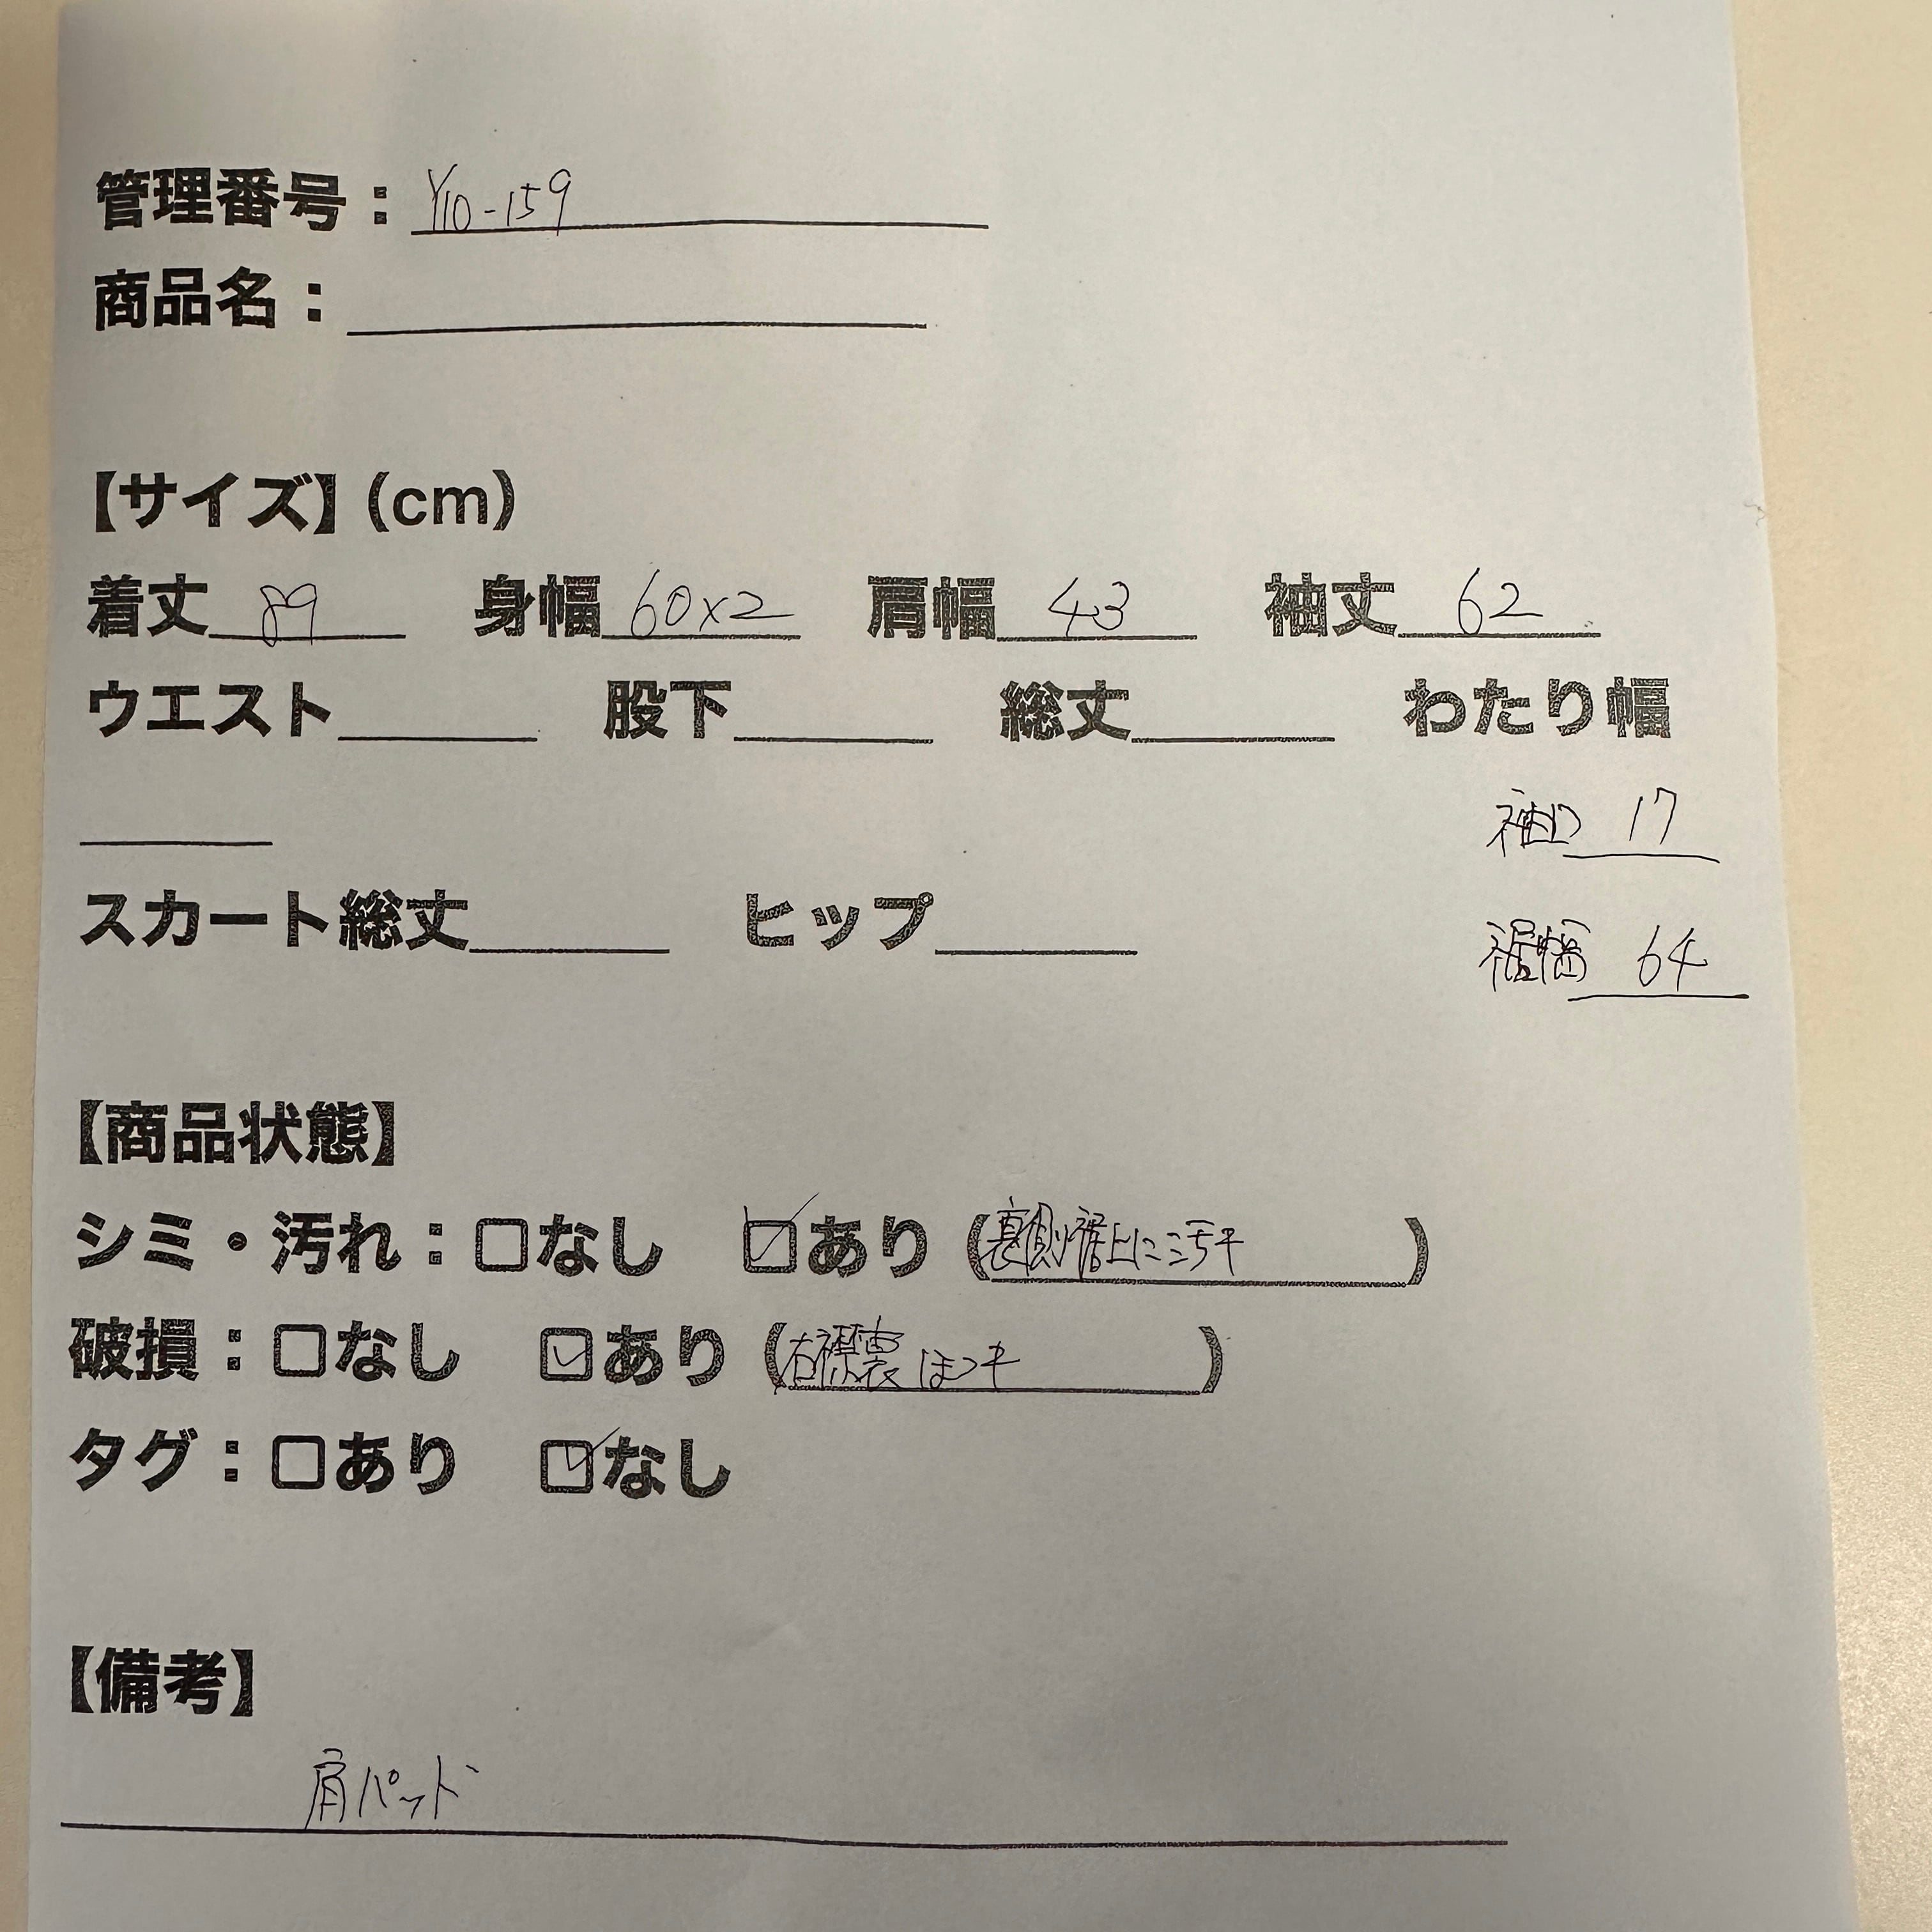 管理番号：Y10-159
商品名：
【サイズ】(cm)
着丈 89 身幅 60×2 肩幅 43 袖丈 62
ウエスト 股下 総丈 わたり幅
袖口 17
スカート総丈 ヒップ
裾幅 64
【商品状態】
シミ・汚れ：□なし ☑あり (裏側裾上に汚れ)
破損：□なし ☑あり (右裏 ほつれ)
タグ：□あり ☑なし
【備考】
肩パッド